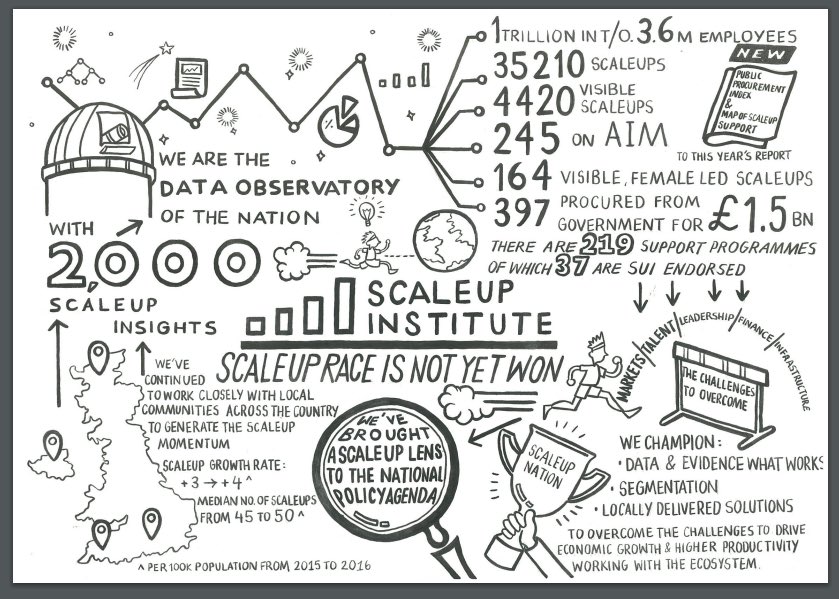 1 TRILLION IN T/O. 3.6 M EMPLOYEES
35210 SCALEUPS
4420 VISIBLE SCALEUPS
245 ON AIM
164 VISIBLE, FEMALE LED SCALEUPS
397 PROCURED FROM
GOVERNMENT FOR £1.5 BN
NEW
PUBLIC
PROCUREMENT
INDEX
&
MAP OF SCALEUP
SUPPORT
TO THIS YEAR'S REPORT
THERE ARE 219 SUPPORT PROGRAMMES
OF WHICH 37 ARE SUI ENDORSED
%
WE ARE THE
DATA OBSERVATORY
OF THE NATION
WITH
2,000
SCALEUP
INSIGHTS
SCALEUP
INSTITUTE
SCALEUP RACE IS NOT YET WON
WE'VE
CONTINUED
TO WORK CLOSELY WITH LOCAL
COMMUNITIES ACROSS THE COUNTRY
TO GENERATE THE SCALEUP
MOMENTUM
SCALEUP GROWTH RATE:
+3 → +4 ^
MEDIAN NO. OF SCALEUPS
FROM 45 TO 50 ^
^ PER 100K POPULATION FROM 2015 TO 2016
WE'VE
BROUGHT
A SCALEUP LENS
TO THE NATIONAL
POLICY AGENDA
MARKETS/TALENT/LEADERSHIP/FINANCE/INFRASTRUCTURE
THE CHALLENGES
TO OVERCOME
SCALEUP
NATION
WE CHAMPION:
• DATA & EVIDENCE WHAT WORKS
• SEGMENTATION
• LOCALLY DELIVERED SOLUTIONS
TO OVERCOME THE CHALLENGES TO DRIVE
ECONOMIC GROWTH & HIGHER PRODUCTIVITY
WORKING WITH THE ECOSYSTEM.